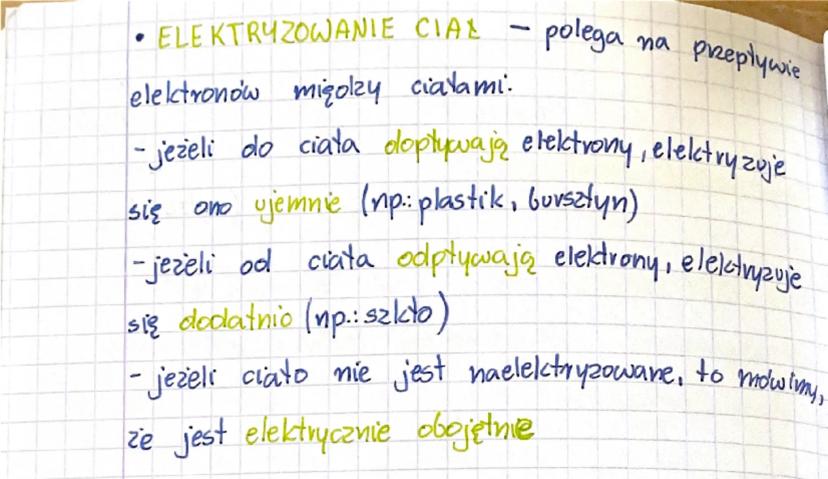 • ELEKTRYZOWANIE CIAŁ – polega na przepływie
elektronów między ciałami:
- jeżeli do ciała dopływają elektrony, elektryzuje
się ono ujemnie (np.: plastik, bursztyn)
- jeżeli od ciała odpływają elektrony, elektryzuje
się dodatnio (np.: szkło)
- jeżeli ciało nie jest naelektryzowane, to mówimy,
że jest elektrycznie obojętnie